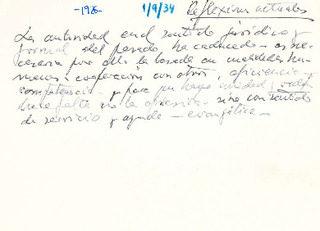 -1926- 1/9/34 Reflexiones actuales
La autoridad en el sentido jurídico y
formal del pasado, ha caducado - es ne-
cesaria pero ella basada en cualidades hu-
manas: cooperación con otros, eficiencia,
competencia - y para que haya unidad,
hace falta no la opresión - sino con sentido
de servicio y ayuda - evangélica -